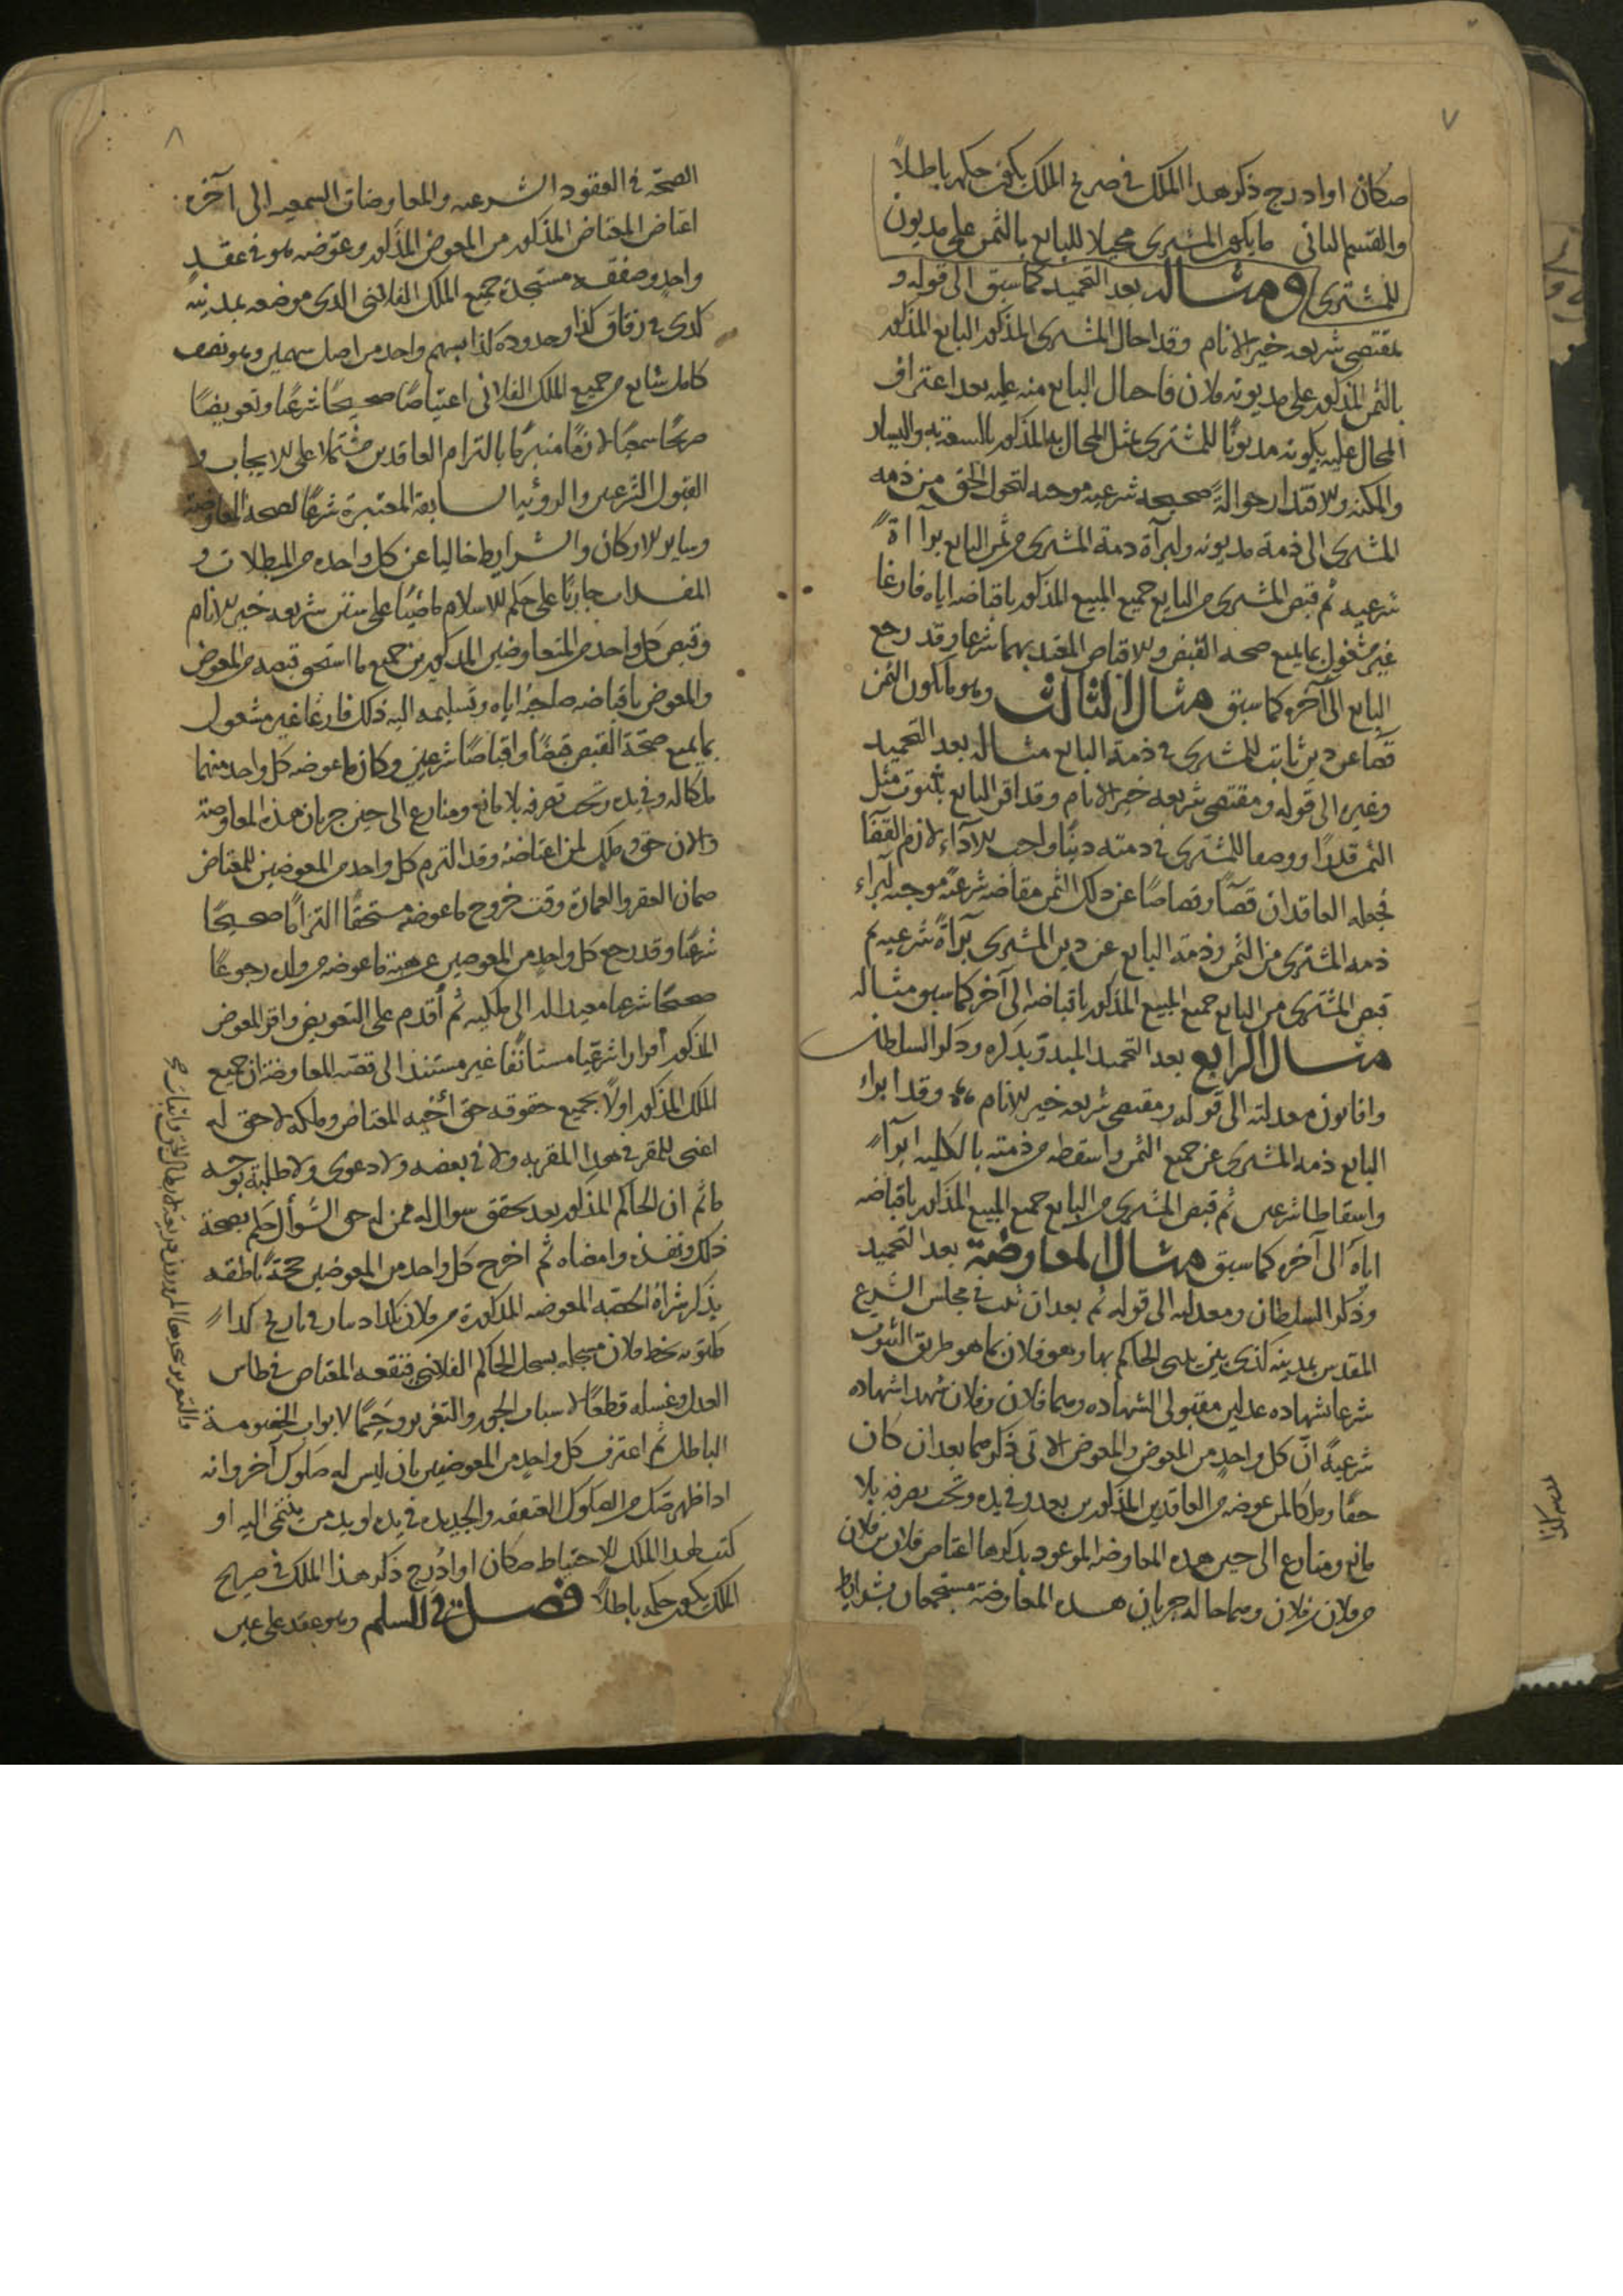 ٧
صكان او ادرج ذكر هذا الملك في صريح الملك يكون حكمه باطلاً
والقسم الثاني ما يكون المشتري محيلا للبايع بالثمن على مديون
للمشتري ومثاله بعد التحميد كما سبق الى قوله و
بمقتضى شريعه خير الانام وقد احال المشتري المذكور البايع المذكور
بالثمن المذكور على مديونه فلان فاحال البايع منه عليه بعد اعتراف
المحال عليه بكونه مديونًا للمشتري بمثل المحال به المذكور واليسار
والمكنه والاقتدار حوالةً صحيحه شرعيه موجبه لتحول الحق من ذمه
المشتري الى ذمة مديونه ولبرآة ذمة المشتري من ثمن البايع برآاةً
شرعيه ثم قبض المشتري من البايع جميع المبيع المذكور باقباضه اياه فارغا
غير مشغول بما يمنع صحه القبض والاقباض المعتد بهما شرعا وقد رجع
البايع الى آخره كما سبق مثال الثالث وهو ما يكون الثمن
قصا عن دين ثابت للمشتري في ذمة البايع مثاله بعد التحميد
وغيره الى قوله ومقتضى شريعه خير الانام وقد اقر البايع بثبوت مثل
الثمن قدرًا ووصفا للمشتري في ذمته دينًا واجب الاداء لازم القضا
فجعله العاقدان قصًا وقصاصًا عن ذلك الثمن مقاصه شرعيه موجبه لبراء
ذمه المشتري من الثمن وذمة البايع عن دين المشتري برآةً شرعيه ثم
قبض المشتري من البايع جميع المبيع المذكور باقباضه الى آخر كما سبق مثاله
مثال الرابع بعد التحميد المبدؤ بذكره وذكر السلطان
وافانون معدلته الى قوله ومقتضى شريعه خير الانام وقد ابراء
البايع ذمه المشتري عن جميع الثمن واسقطه من ذمته بالكليه ابرآءً
واسقاطا شرعيين ثم قبض المشتري من البايع جميع المبيع المذكور باقباضه
اياه الى آخره كما سبق مثال المعاوضة بعد التحميد
وذكر السلطان ومعدلته الى قوله ثم بعد ان ثبت في مجلس الشرع
المقدس بمدينه كذى بين يدى الحاكم بها وهو فلان بما هو طريق الثبوت
شرعا شهاده عدلين مقبولى الشهاده وهما فلان وفلان شهدا شهاده
شرعيةً ان كل واحدٍ من المعوض والمعوض الاتى ذكرهما بعد ان كان
حقا وملكا لمن عوضه من العاقدين المذكورين بعد وفي يده وتحت تصرفه بلا
مانع ومنازع الى حين هذه المعاوضه الموعود بذكرها اعتاض فلان بن فلان
من فلان بن فلان وهما حاله جريان هذه المعاوضة مستجمعان شرايط
٨
الصحّة في العقود الشرعيه والمعاوضات السمعيه الى آخره
اعتاض المعتاض المذكور من المعوض المذكور وعوّضه هو في عقدٍ
واحدٍ وصفقه مستجدّة جميع الملك الفلانى الذى موضعه بمدينه
كذى في زقاق كذا وحدوده كذا بسهم واحد من اصل سهمين وهو نصف
كامل شايع من جميع الملك الفلانى اعتياضًا صحيحًا شرعيًا وتعويضًا
صريحًا سمعيًا لازمًا منبرمًا بالتزام العاقدين مشتملا على الايجاب و
القبول الشرعيين والرؤية السابقة المعتبرة شرعًا لصحة المعاوضة
وساير الاركان والشرايط خاليا عن كل واحده من المبطلات و
المفسدات جاريًا على حكم الاسلام ماضيًا على سنن شريعه خير الانام
وقبض كل واحد من المتعاوضين المذكورين جميع ما استحق قبضه من المعوض
والمعوض باقباضه صاحبُه اياه وتسليمه اليه ذلك فارغا غير مشغول
بما يمنع صحّة القبض قبضًا واقباضًا شرعيين وكان ما عوضه كل واحد منهما
ملكا له وفي يده وتحت تصرفه بلا مانع ومنازع الى حين جريان هذه المعاوضة
والان حق وملك لمن اعتاضه وقد التزم كل واحد من المعوضين للمعتاض
ضمان العقر والعمارة وقت خروج ما عوضه مستحقًا التزامًا صحيحًا
شرعيًا وقد رجع كل واحد من المعوضين عن هبة ما عوضه من ولده رجوعًا
صحيحًا شرعيا معيدا له الى ملكيه ثم اقدم على التعويض واقر المعوض
المذكور اقرارا شرعيا مستأنفًا غير مستند الى قضيه المعاوضة ان جميع
الملك المذكور اولاً بجميع حقوقه حق أخيه المعتاض وملكه لا حق له
اعنى للمقر في هذا المقربه ولا في بعضه ولا دعوى ولا طلبة بوجه
ما ثم ان الحاكم المذكور بعد تحقق سوال له ممن له حق السؤال حكم بصحة
ذلك ونفذه وامضاه ثم اخرج كل واحد من المعوضين حجةً ناطقه
بذكر شراءُ الحصة المعوضه المذكورة من فلان بكذا دينار في تاريخ كذا
مكتوبه بخط فلان مسجله بسجل الحاكم الفلانى فنقعه المعتاض في طاس
العدل وغسله قطعًا لاسباب الجور والتغرير وحسمًا لابواب الخصومة
الباطله ثم اعترف كل واحدٍ من المعوضين بان ليس له صكوك آخر وانه
اذا ظهر صك من الصكوك العتيقه والجديده في يده او يد من ينتمى اليه او
كتب لهذا الملك للاحتياط صكان او ادرج ذكر هذا الملك في صريح
الملك يكون حكمه باطلاً فصل في السلم وهو عقد على عين